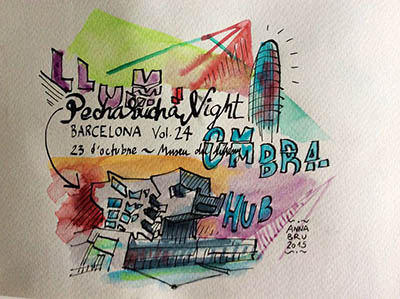 LLUM
PechaKucha Night
BARCELONA Vol. 24
23 d'octubre ~ Museu del
OMBRA
HUB
ANNA
BRU
2015